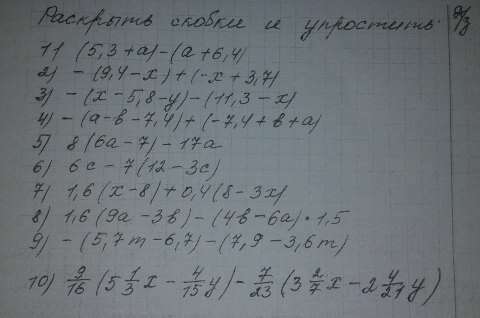 Раскрыть скобки и упростить. д/з
1) (5,3+а)-(а+6,4)
2) -(9,4-х)+(-х+3,7)
3) -(х-5,8-у)-(-11,3-х)
4) -(а-в-7,4)+(-7,4+в+а)
5) 8(6а-7)-17а
6) 6с-7(12-3с)
7) 1,6(х-8)+0,4(8-3х)
8) 1,6(9а-3в)-(4в-6а)·1,5
9) -(5,7m-6,7)-(7,9-3,6m)
10) 9/16 (5 1/3 х - 4/15 у) - 7/23 (3 2/7 х - 2 4/21 у)